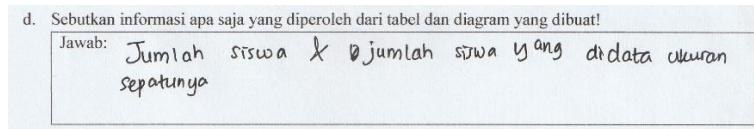 d. Sebutkan informasi apa saja yang diperoleh dari tabel dan diagram yang dibuat!
Jawab: Jumlah siswa & jumlah siswa yang didata ukuran
sepatunya